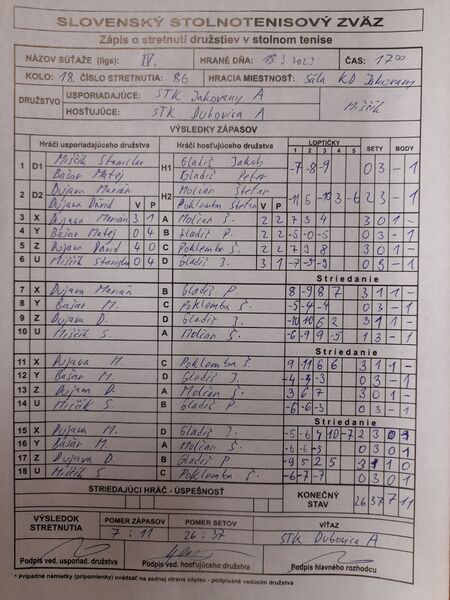 SLOVENSKÝ STOLNOTENISOVÝ ZVÄZ
Zápis o stretnutí družstiev v stolnom tenise
NÁZOV SÚŤAŽE (liga): IV. HRANÉ DŇA: 18.3.2023 ČAS: 17 00
KOLO: 18. ČÍSLO STRETNUTIA: 86 HRACIA MIESTNOSŤ: Sála KD Jakovany
DRUŽSTVO USPORIADAJÚCE: STK Jakovany A
HOSŤUJÚCE: STK Dubovica A Miščík
VÝSLEDKY ZÁPASOV
Hráči usporiadajúceho družstva Hráči hosťujúceho družstva LOPTIČKY 1 2 3 4 5 SETY BODY
1 D1 Miščík Stanislav H1 Gladiš Jakub -7 -8 -9 0 3 - 1
Bašar Matej Gladiš Peter
2 D2 Dujava Marián H2 Molčan Štefan 2 3 - 1
Dujava Dávid V P Poklemba Štefan V P
3 X Dujava Marián 3 1 A Molčan Š. 2 2 7 3 4 3 0 1 -
4 Y Bašar Matej 0 4 B Gladiš P. 2 2 -5 -0 -5 0 3 - 1
5 Z Dujava Dávid 4 0 C Poklemba Š. 2 2 7 9 8 3 0 1 -
6 U Miščík Stanislav 0 4 D Gladiš J. 3 1 -7 -5 -9 0 3 - 1
Striedanie
7 X Dujava Marián B Gladiš P. 8 -9 8 7 3 1 1 -
8 Y Bašar M. C Poklemba Š. -5 -4 -4 0 3 - 1
9 Z Dujava D. D Gladiš J. -10 10 6 2 3 1 1 -
10 U Miščík S. A Molčan Š. -6 -9 9 -5 1 3 - 1
Striedanie
11 X Dujava M. C Poklemba Š. 9 -11 6 6 3 1 1 -
12 Y Bašar M. D Gladiš J. -4 -4 -3 0 3 - 1
13 Z Dujava D. A Molčan Š. 3 6 7 3 0 1
14 U Miščík S. B Gladiš P. -6 -6 -3 0 3 - 1
Striedanie
15 X Dujava M. D Gladiš J. -5 -6 4 10 -7 2 3 0 1
16 Y Bašar M. A Molčan Š. 0 3 0 1
17 Z Dujava D. B Gladiš P. -9 5 2 5 3 1 1 0
18 U Miščík S. C Poklemba Š. -6 -7 -7 0 3 0 1
STRIEDAJÚCI HRÁČ - ÚSPEŠNOSŤ KONEČNÝ STAV 26 37 7 11
VÝSLEDOK STRETNUTIA POMER ZÁPASOV POMER SETOV VÍŤAZ
7 : 11 26 : 37 STK Dubovica A
Podpis ved. usporiad. družstva Podpis ved. hosťujúceho družstva Podpis hlavného rozhodcu
* Prípadné námietky (pripomienky) uvádzať na zadnej strane zápisu - podpísané vedúcim družstva